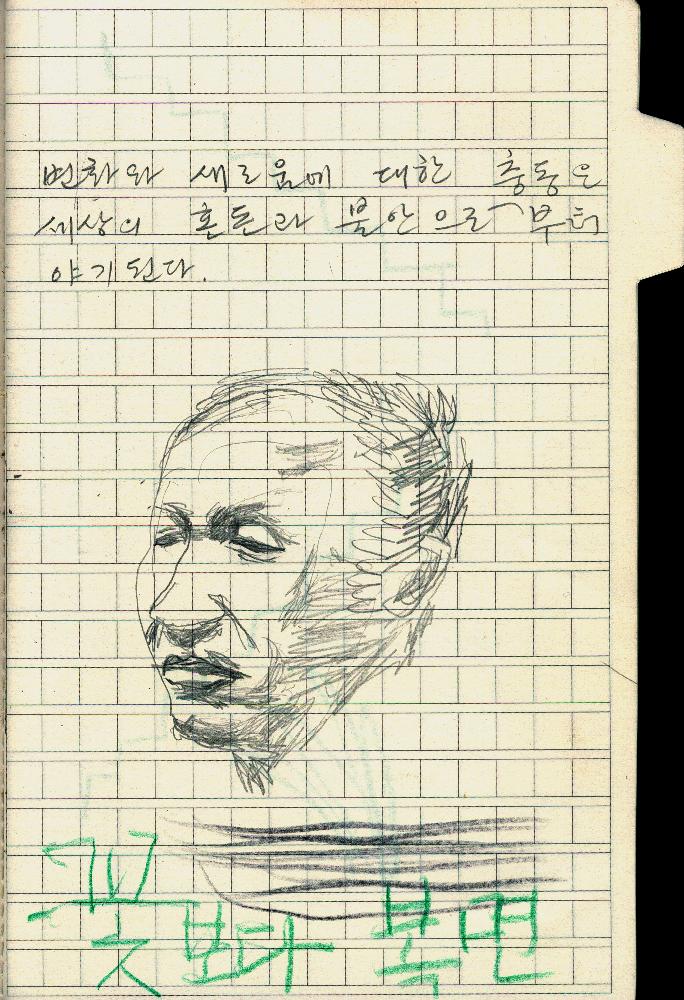 변화와 새로움에 대한 충동은
세상의 혼돈과 불안으로부터
야기된다.
꽃보다 복면